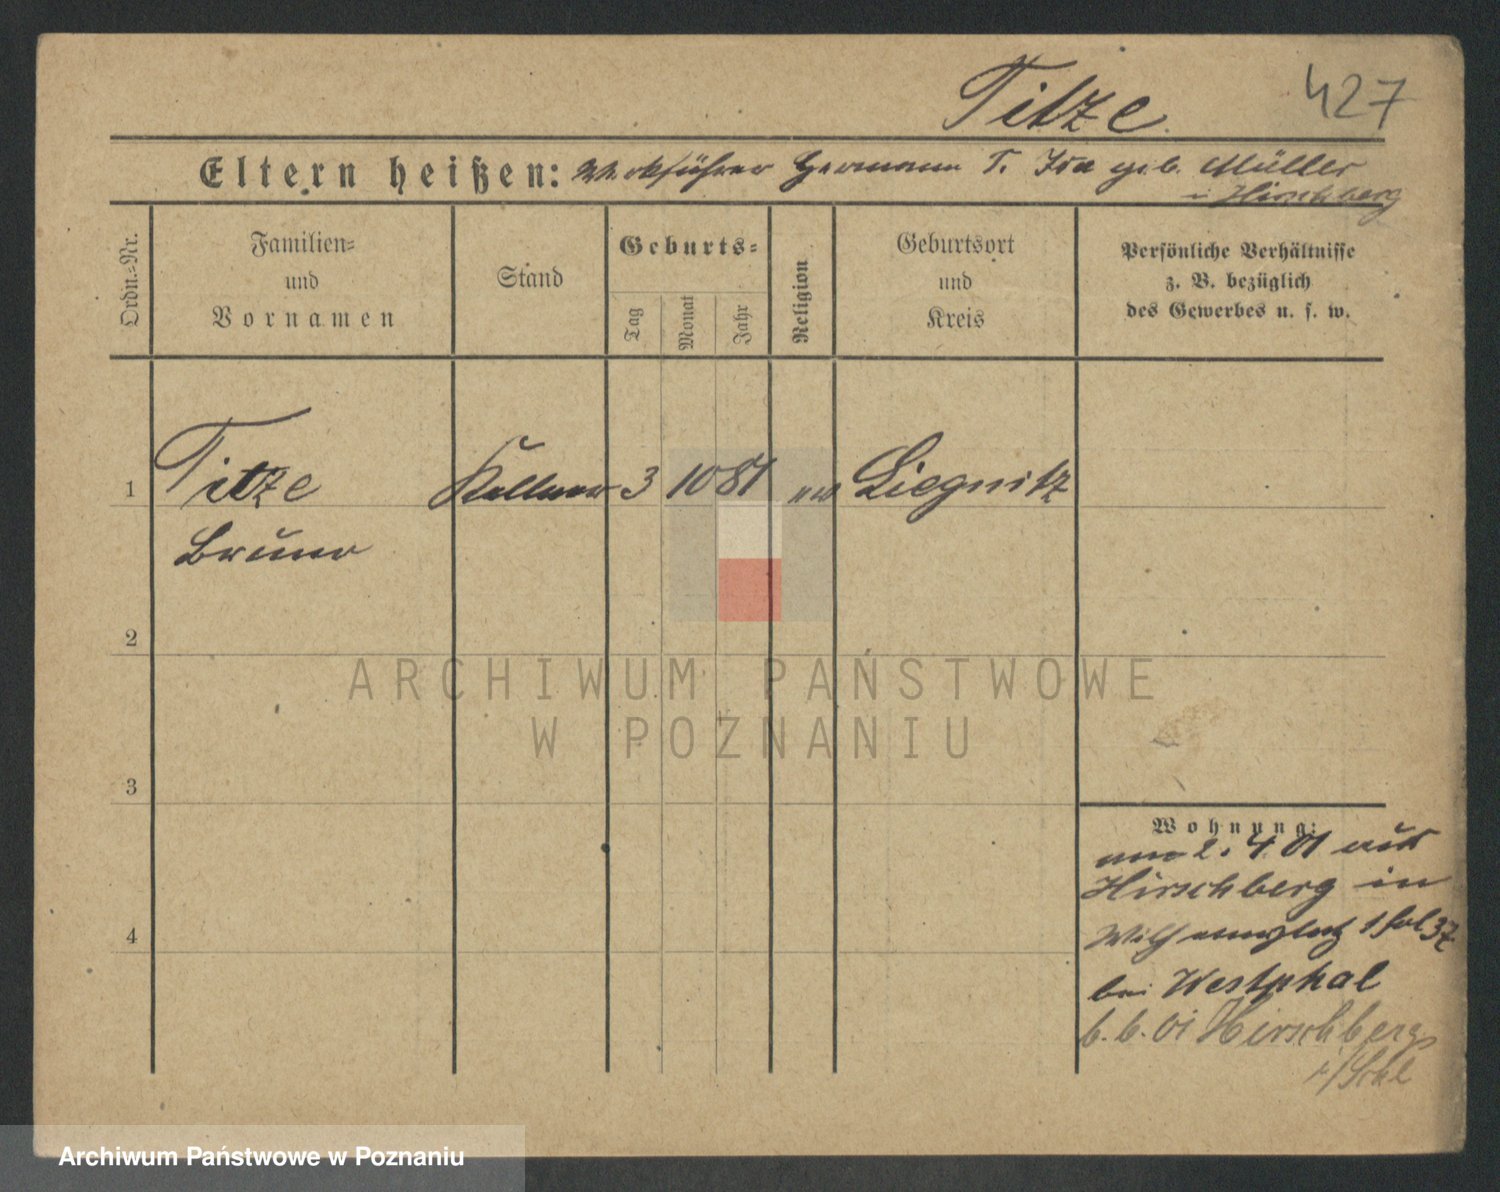 Titze
427
Eltern heißen: Werkführer Hermann T. Ida geb. Müller
i Hirschberg
Ordn.-Nr.
Familien- und Vornamen
Stand
Geburts-
Tag
Monat
Jahr
Religion
Geburtsort und Kreis
Persönliche Verhältnisse
z. B. bezüglich
des Gewerbes u. s. w.
1 Titze Kellner 3 10 81 ev Liegnitz
Bruno
2
3
4
Wohnung:
2. 4. 01 aus
Hirschberg in
Wilhelmsplatz 1
bei Westphal
6. 6. 01 Hirschberg
i/Schl
ARCHIWUM PAŃSTWOWE
W POZNANIU
Archiwum Państwowe w Poznaniu